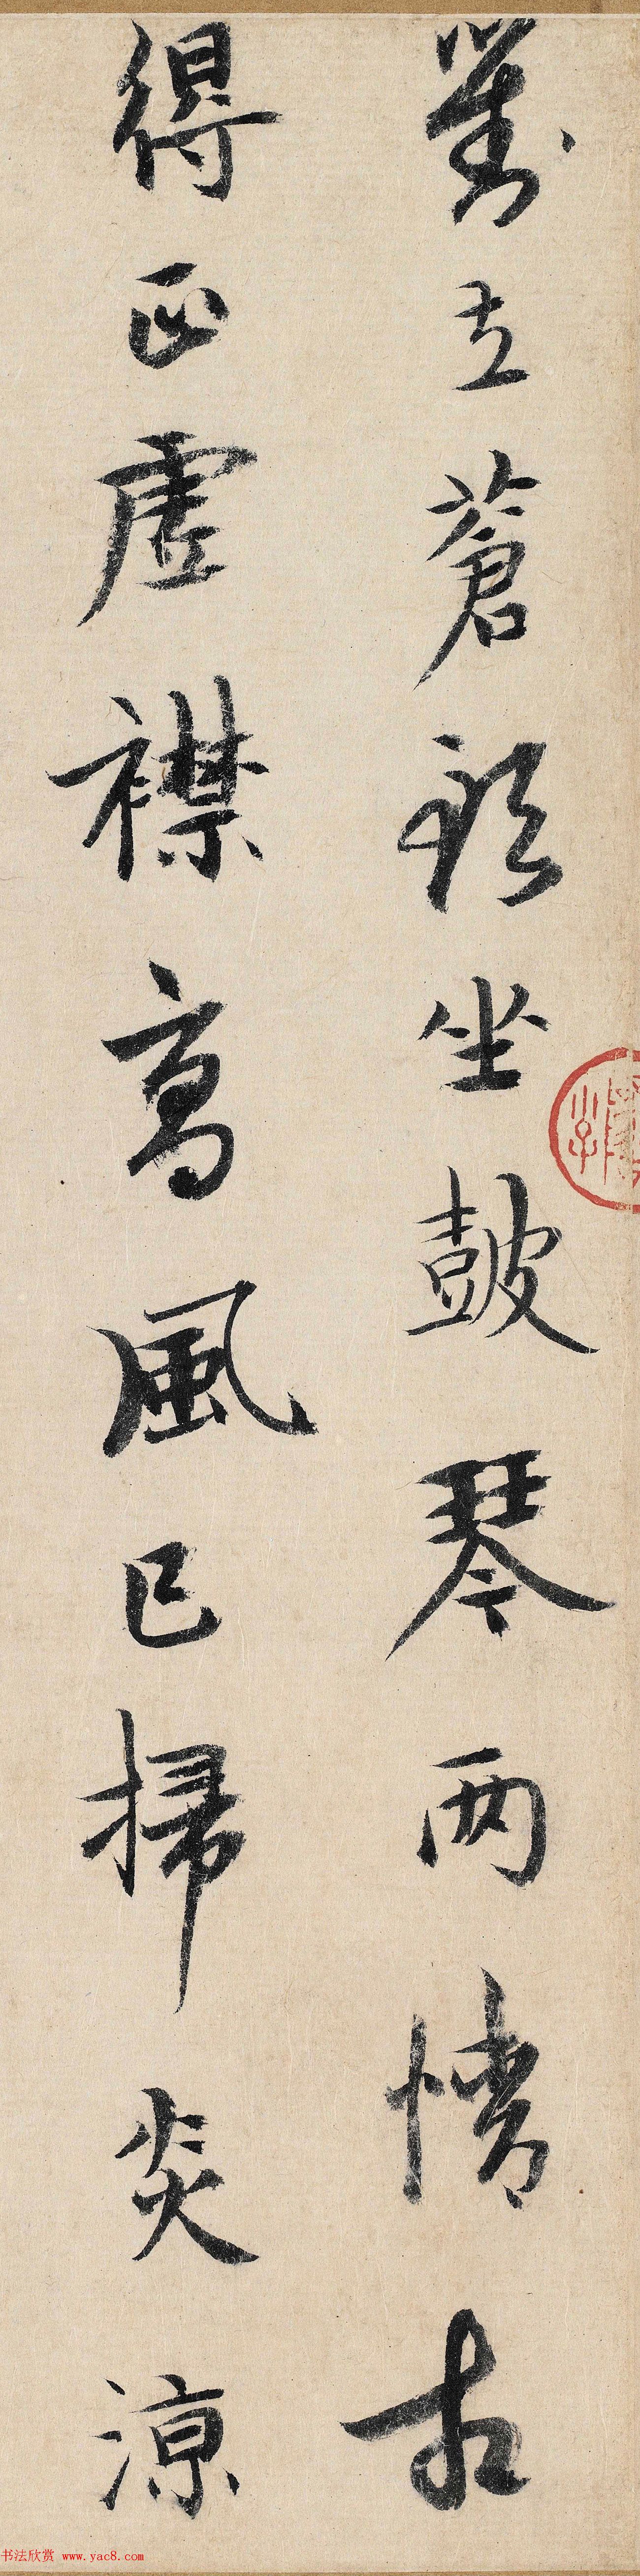 對立蒼頭坐鼓琴兩情相
得正虛襟高風已掃炎涼
书法欣赏 www.yac8.com